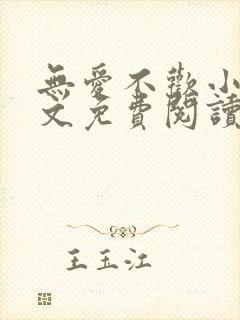 無愛不歡小
文免費閱讀
王玉江